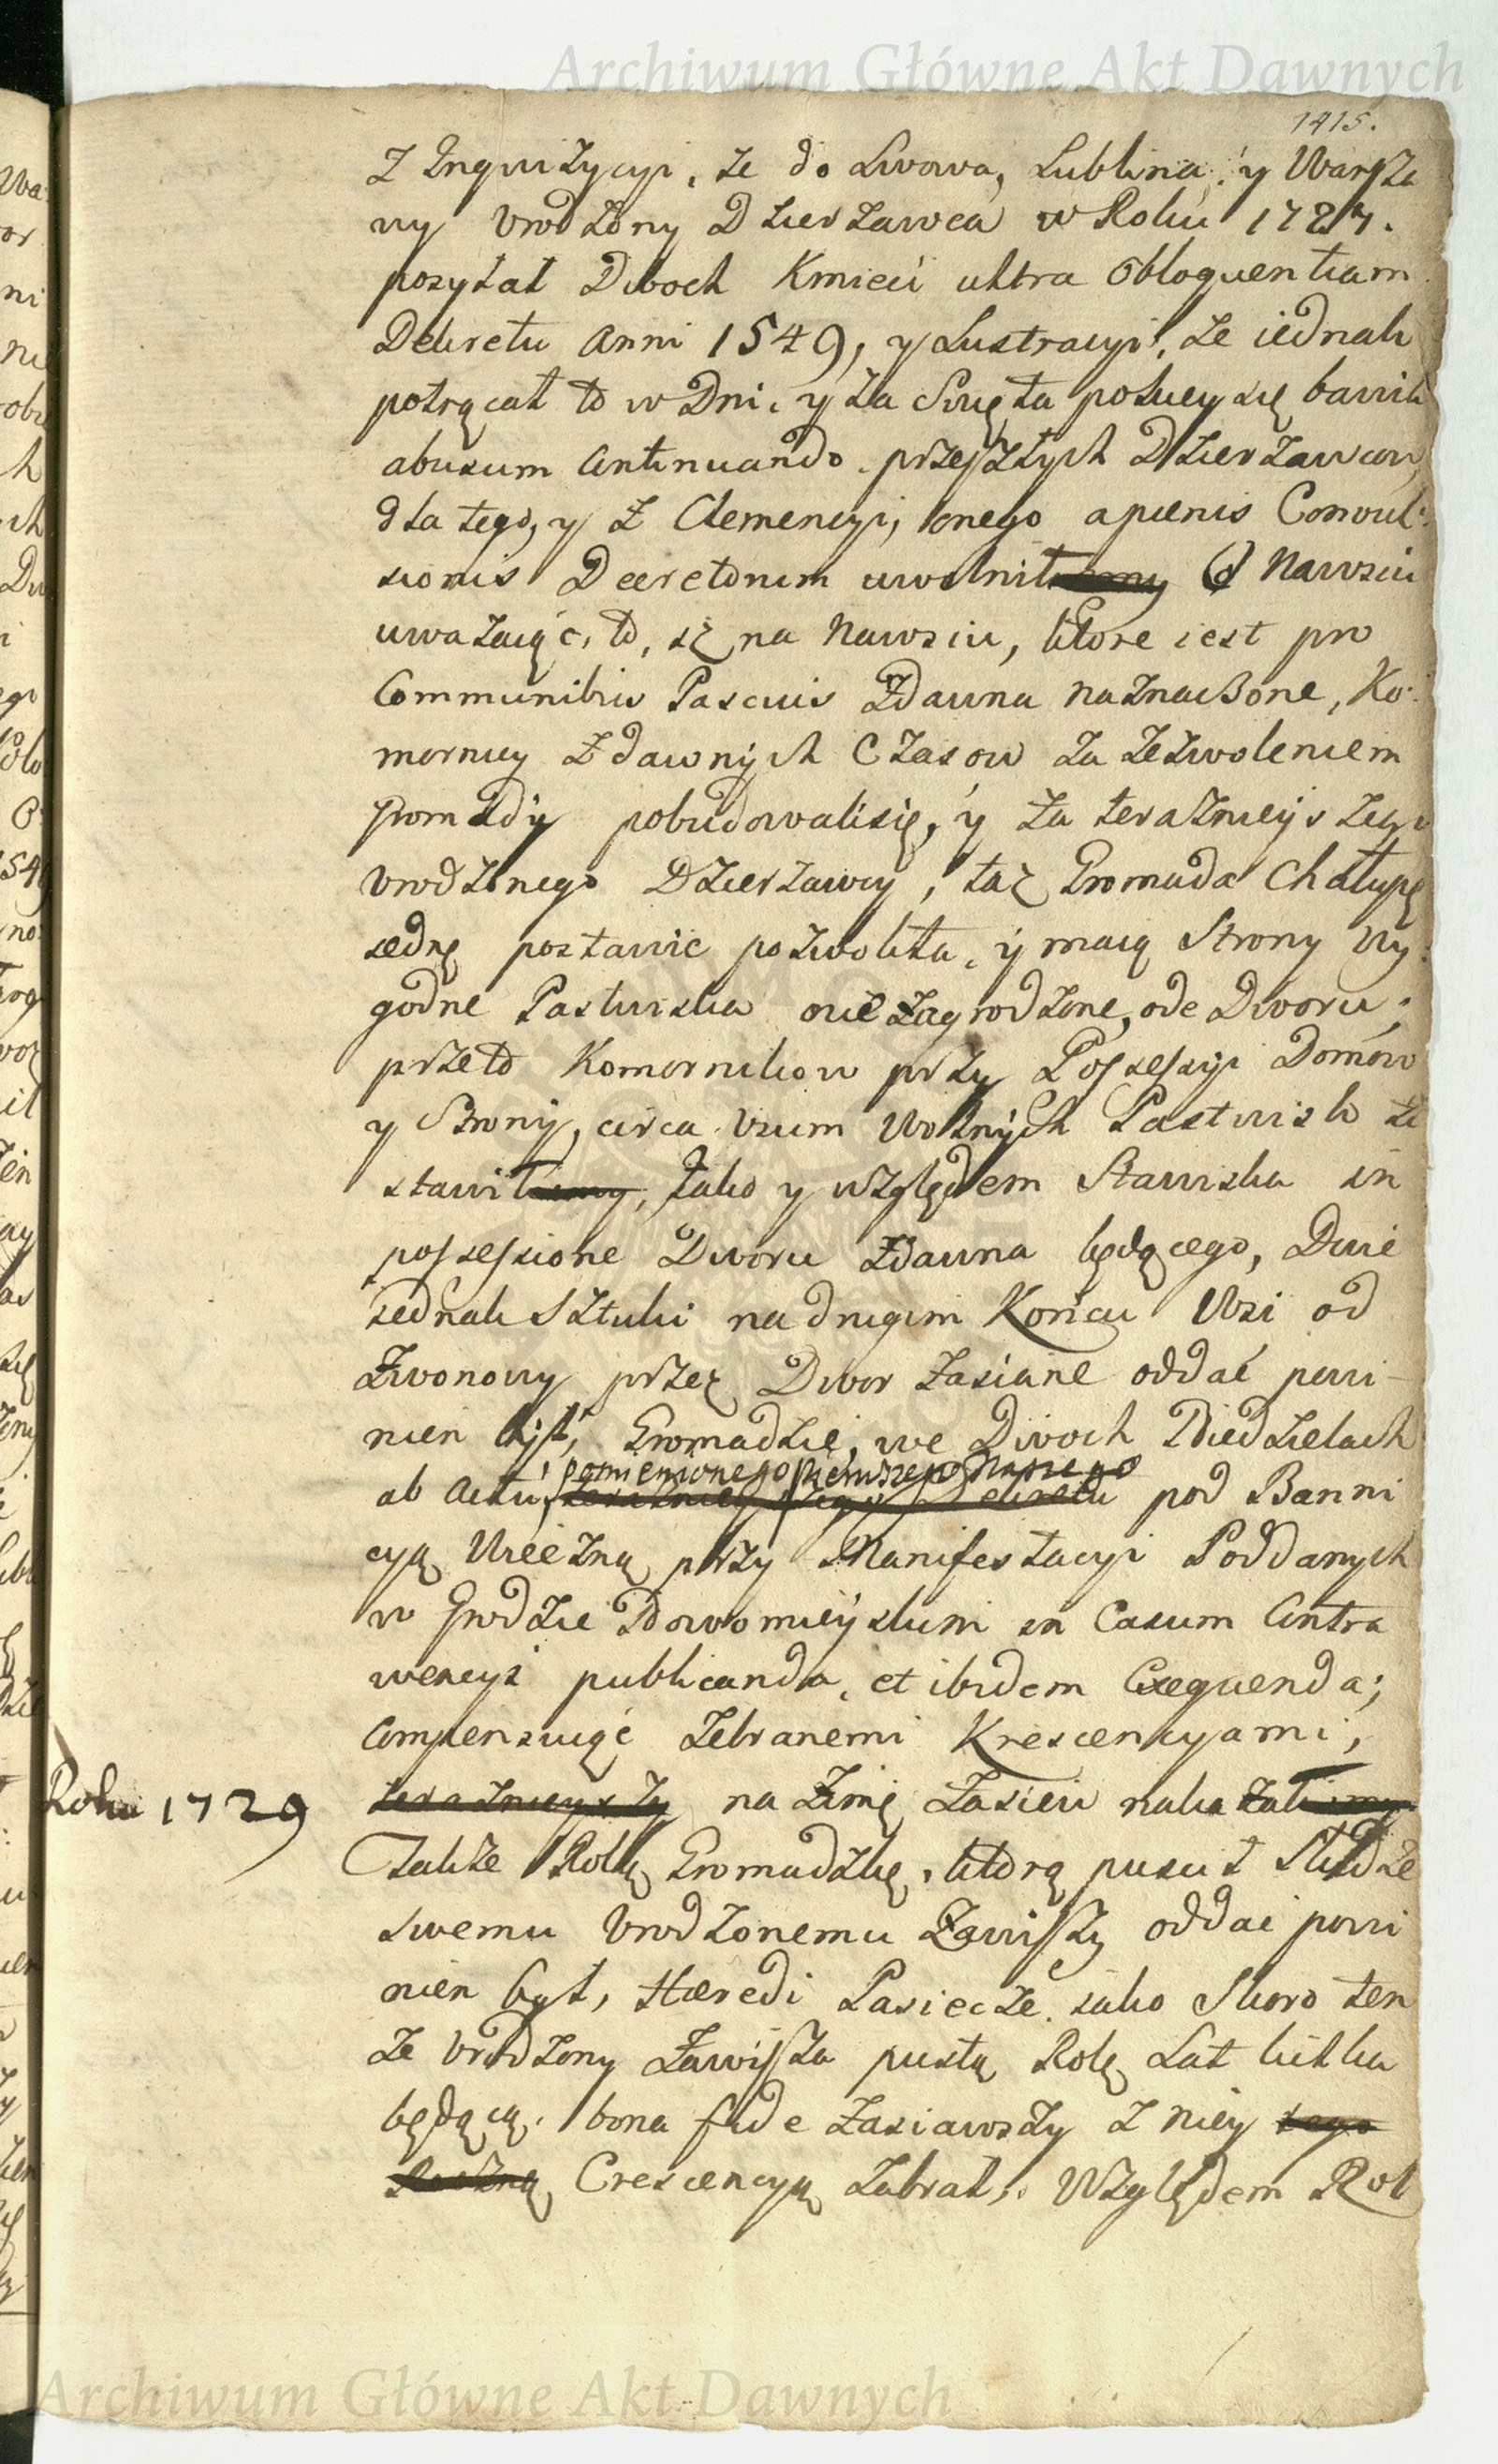 Archiwum Główne Akt Dawnych
1415.
z Inquizycyi, że do Lwowa, Lublina, y Warsza
wy Urodzony Dzierżawca w Roku 1727.
posyłał Dwoch Kmieci ultra obloquentiam
Dekretu Anni 1549, y Lustracyi, że iednak
potrącał to w Dni, y za Swięta
abusum Continuando przeszłych Dzierzawcow,
dla tego, y z Clemencyi, onego a pœnis Convul-
sionis Decretorum uwolnił O Nawsiu
uważaiąc, to, iż na Nawsiu, ktore iest pro
Communibus Pascuis zdawna naznaczone, Ko-
mornicy z dawnych Czasow za zezwoleniem
Gromady pobudowali się, y za teraznieyszego
Urodzonego Dzierzawcy, taż Gromada Chałupę
iednę postawic pozwoliła, y maią Strony wy-
godne Pastwiska nie zagrodzone, ode Dworu;
przeto Komornikow przy Possessyi Domow
y Strony, circa Usum Wolnych Pastwisk zo
stawił, Jako y względem Stawiska in
possessione Dworu zdawna będącego, Dwie
iednak Sztuki na drugim Końcu Wsi od
Zwonowy przez Dwor zasiane oddać powi-
nien był, Gromadzie, we Dwoch Niedzielach
pomienionego pierwszego Naszego
ab Actu, teraznieyszego Dekretu pod Banni
cyą Wieczną przy Manifestacyi Poddanych
w Grodzie Nowomieyskim in Casum Contra
wencyi publicanda, et ibidem Exequenda;
Compensuiąc zebranemi Krescencyami,
Roku 1729
teraznieyszy na Zimę Zasiew nakazali
Także Rolę Gromadzką, ktorą puscił Słudze
swemu Urodzonemu Zawiszy oddać powi
nien był, Hæredi Pasiecze, iako Skoro ten
że Urodzony Zawisza pustą Rolę Lat kilka
będącą, bona fide zasiawszy z niey tego
Crescencyą zabrał, Względem Rol
Archiwum Główne Akt Dawnych